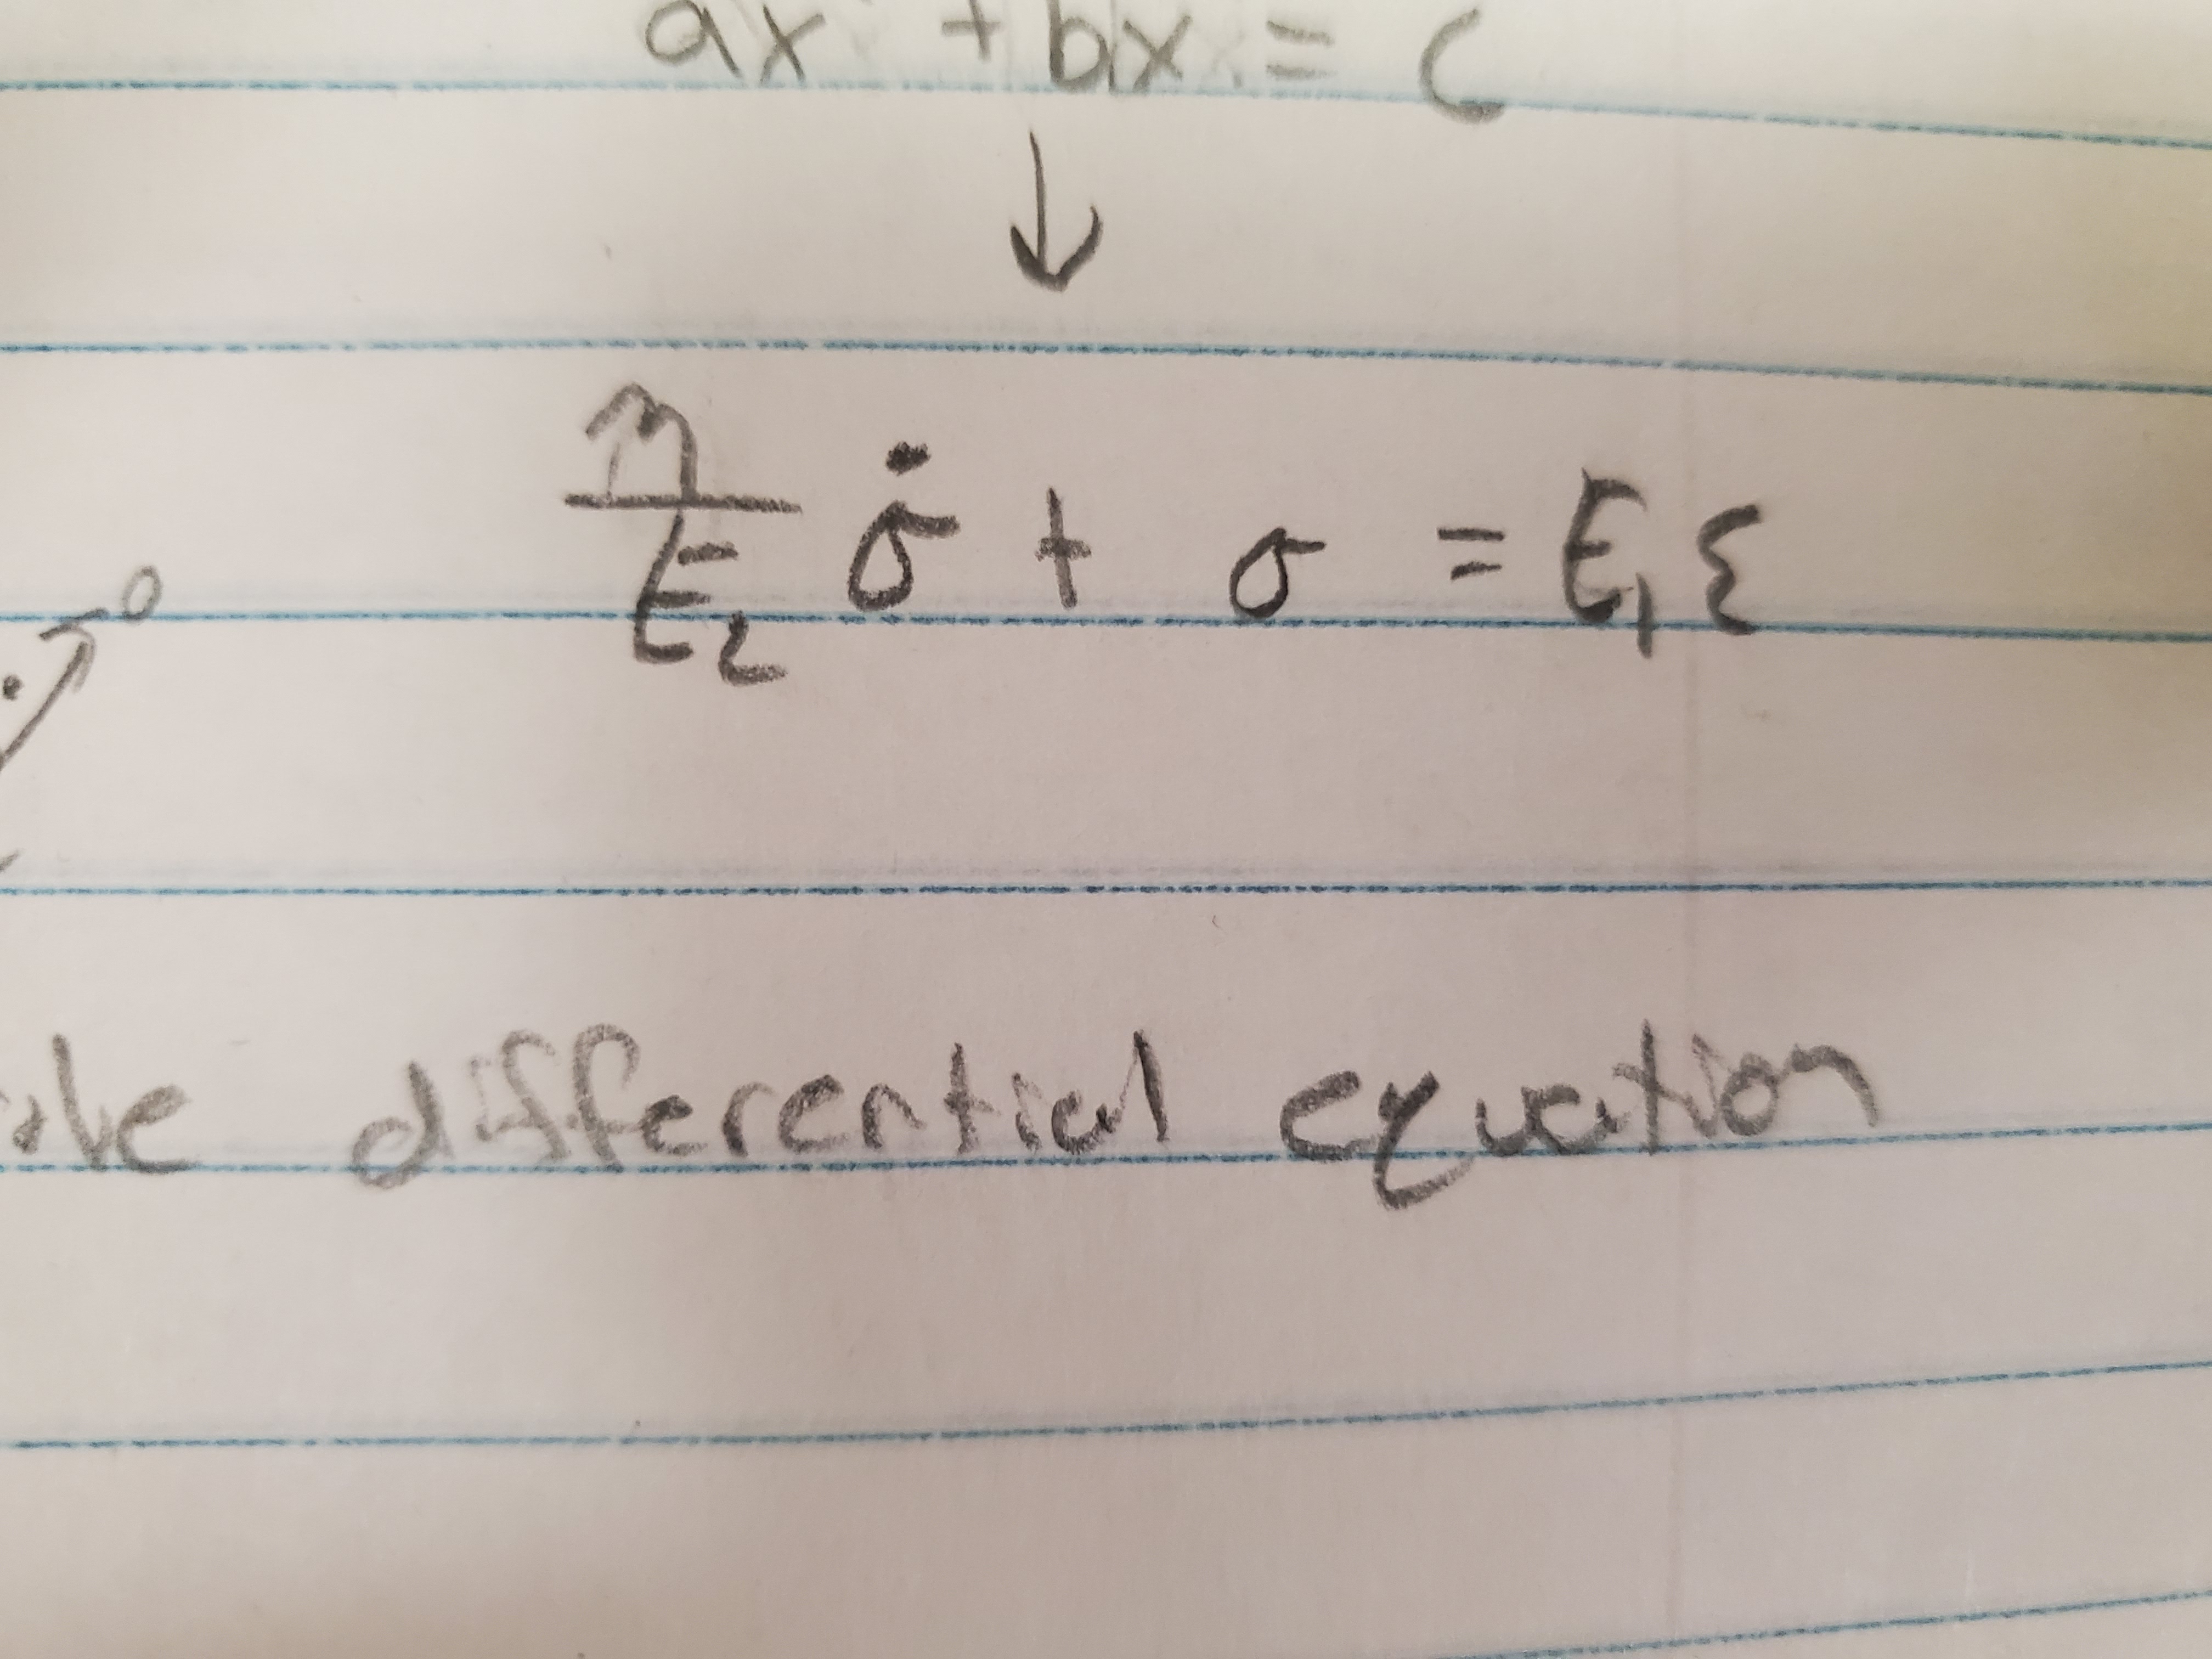 ax + bx = c
↓
η/E₂ σ̇ + σ = E₁ε
0
differential equation